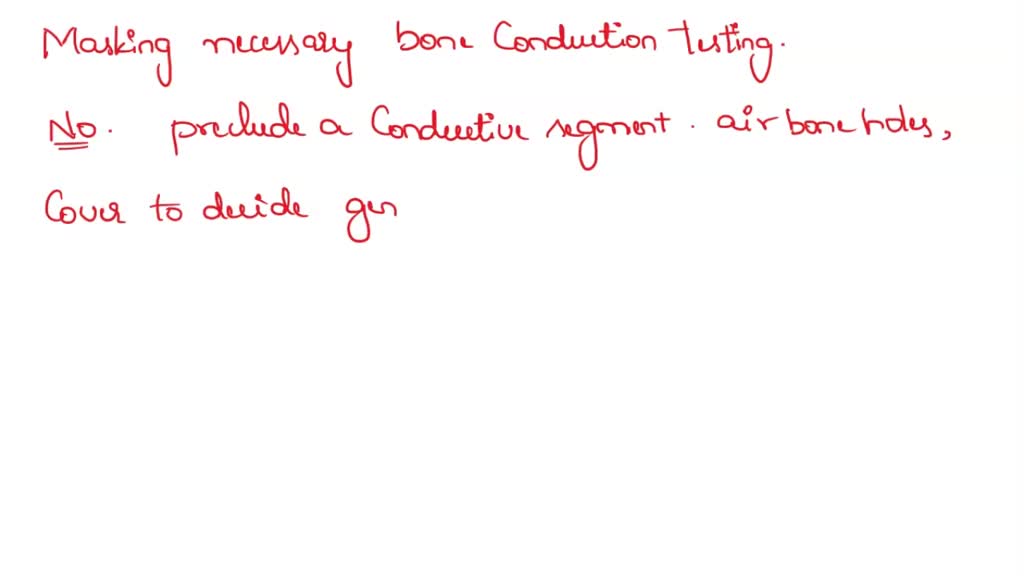 Masking necessary bone Conduction testing.
No. preclude a Conductive segment. air bone holes,
Cover to decide gen